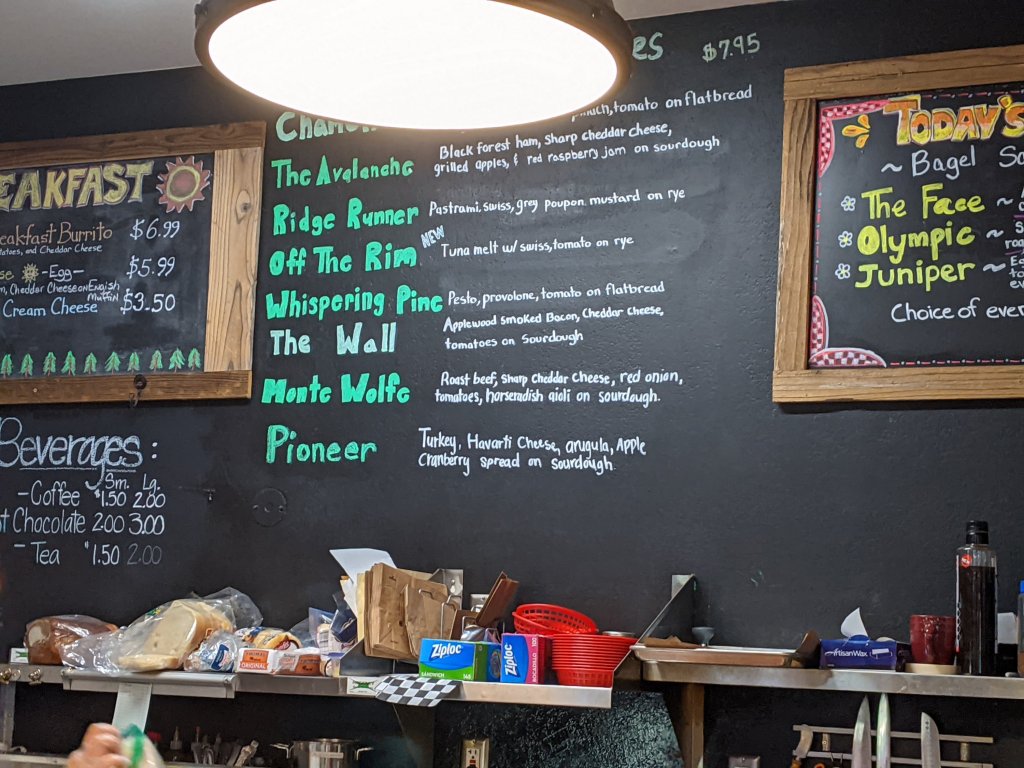 EAKFAST
eakfast Burrito $6.99
atoes, and Cheddar Cheese
-Egg- $5.99
Cheddar Cheese on English Muffin
Cream Cheese $3.50
Beverages:
Sm. Lg.
-Coffee $1.50 2.00
t Chocolate 2.00 3.00
- Tea $1.50 2.00
es $7.95
tomato on flatbread
The Avalanche Black forest ham, Sharp cheddar cheese,
grilled apples, & red raspberry jam on sourdough
Ridge Runner Pastrami, swiss, grey poupon mustard on rye
NEW
Off The Rim Tuna melt w/ swiss, tomato on rye
Whispering Pine Pesto, provolone, tomato on flatbread
The Wall Applewood smoked Bacon, Cheddar Cheese,
tomatoes on Sourdough
Monte Wolfe Roast beef, Sharp Cheddar Cheese, red onion,
tomatoes, horseradish aioli on sourdough.
Pioneer Turkey, Havarti Cheese, arugula, Apple
Cranberry spread on sourdough.
TODAY'S
~ Bagel Sa
The Face ~
Olympic ~
Juniper ~
Choice of ever
ORIGINAL
Ziploc
SANDWICH
Ziploc
ArtisanWax